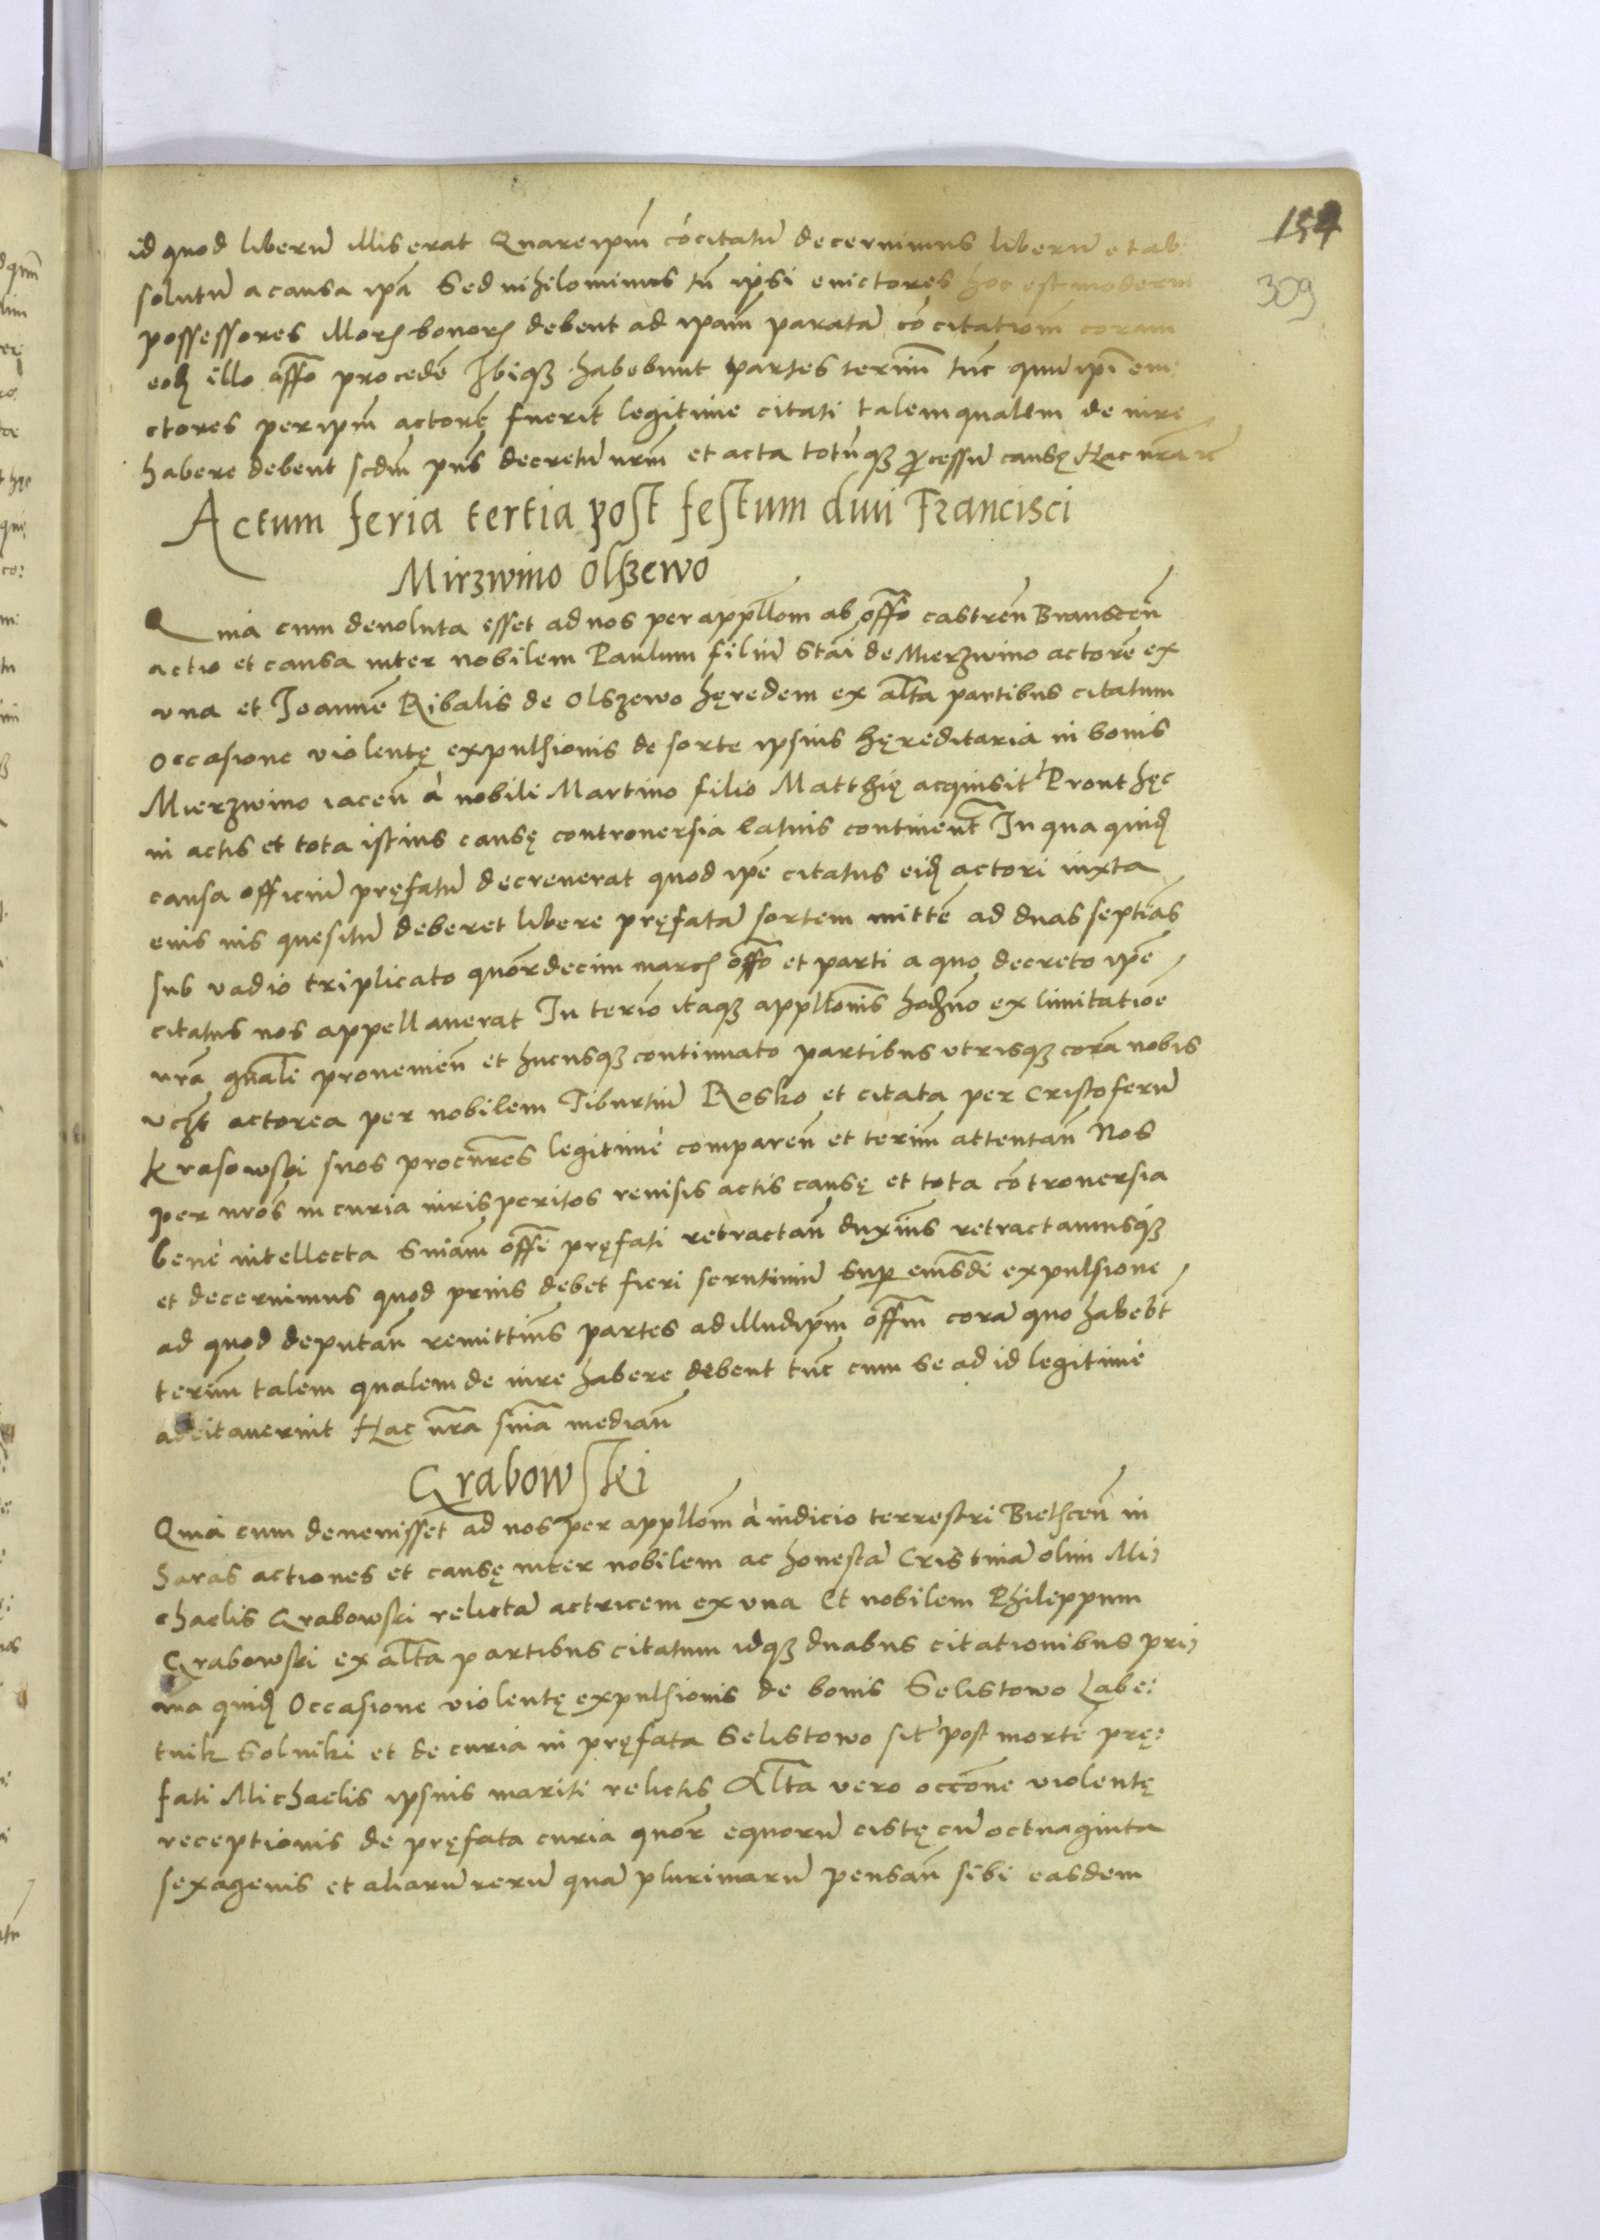 154
309
id quod liberū illis erat Quare ipm̄ cōcitatū decernimus liberū et ab
solutū a causa ipā Sed nihilominus tn̄ ipsi evictores hoc est moderni
possessores illorꝫ bonorꝫ debent ad ipam̄ paratā cōcitationē coram
eodꝫ illo offō procedē Ibiqꝫ habebunt partes terminū tūc quū ipi evi
ctores per ipm̄ actorē fuerīt legitime citati talem qualem de iure
habere debent scdm̄ pn̄s decretū nrm̄ et acta totūqꝫ ꝓcessū causę Hac nrā
Actum feria tertia post festum divi Francisci
Mirzwino Olszewo
Quia cum devoluta esset ad nos per appllōm ab offō castren̄ Branscen̄
actio et causa inter nobilem Paulum filiū Stāi de Mierzwino actorē ex
una et Joannē Ribalis de Olszewo hęredem ex altā partibus citatum
Occasione violentę expulsionis de sorte ipsius hęreditaria in bonis
Mierzwino iacen̄ à nobili Martino filio Matthię acquisit' Prout hęc
in actis et tota istius causę controversia latius continent̄ In qua quidꝫ
causa officiū pręfatū decreverat quod ipē citatus eidꝫ actori iuxta
eius ius quesitū deberet libere pręfatā sortem mittē ad duas septiās
sub vadio triplicato quor̄decim marcꝫ offō et parti a quo decreto ipē
citatus nos appellaverat In teriō itaqꝫ appllōnis hodꝫno ex limitatioē
nrā gn̄ali provenien̄ et hucusqꝫ continuato partibus utrisqꝫ corā nobis
vcꝫt actorea per nobilem Tiburtiū Rosko et citata per Cristoferū
Krasowski suos procur̄es legitimè comparen̄ et teriīm attentan̄ Nos
per nrōs in curia iuris peritos revisis actis causę et tota cōtroversia
benè intellecta Sniām offī pręfati retractan̄ duximꝰ retractamusqꝫ
et decernimus quod prius debet fieri scrutiniū sup eiusdī expulsione
ad quod deputan̄ remittimꝰ partes ad illud ipm̄ offm̄ corā quo habebt̄
teriūm talem qualem de iure habere debent tūc cum se ad id legitimè
adcitaverint Hac nr̄a sniā median̄
Grabowski
Quia cum devenisset ad nos per appllōm à iudicio terrestri Bielscen̄ in
Saras actiones et causę inter nobilem ac honestā Cristinā olim Mi
chaelis Grabowski relictā actricem ex una Et nobilem Philippum
Grabowski ex altā partibus citatum idqꝫ duabus citationibus pri
ma quidꝫ Occasione violentę expulsionis de bonis Selistowo Labe:
tnik Solniki et de curia in pręfata Selistowo sit' post mortē prę:
fati Michaelis ipsius mariti relictis Altā vero occōne violentę
receptionis de pręfata curia quor̄ equorū cistę cū octuaginta
sexagenis et aliarū rerū quā plurimarū pensan̄ sibi easdem